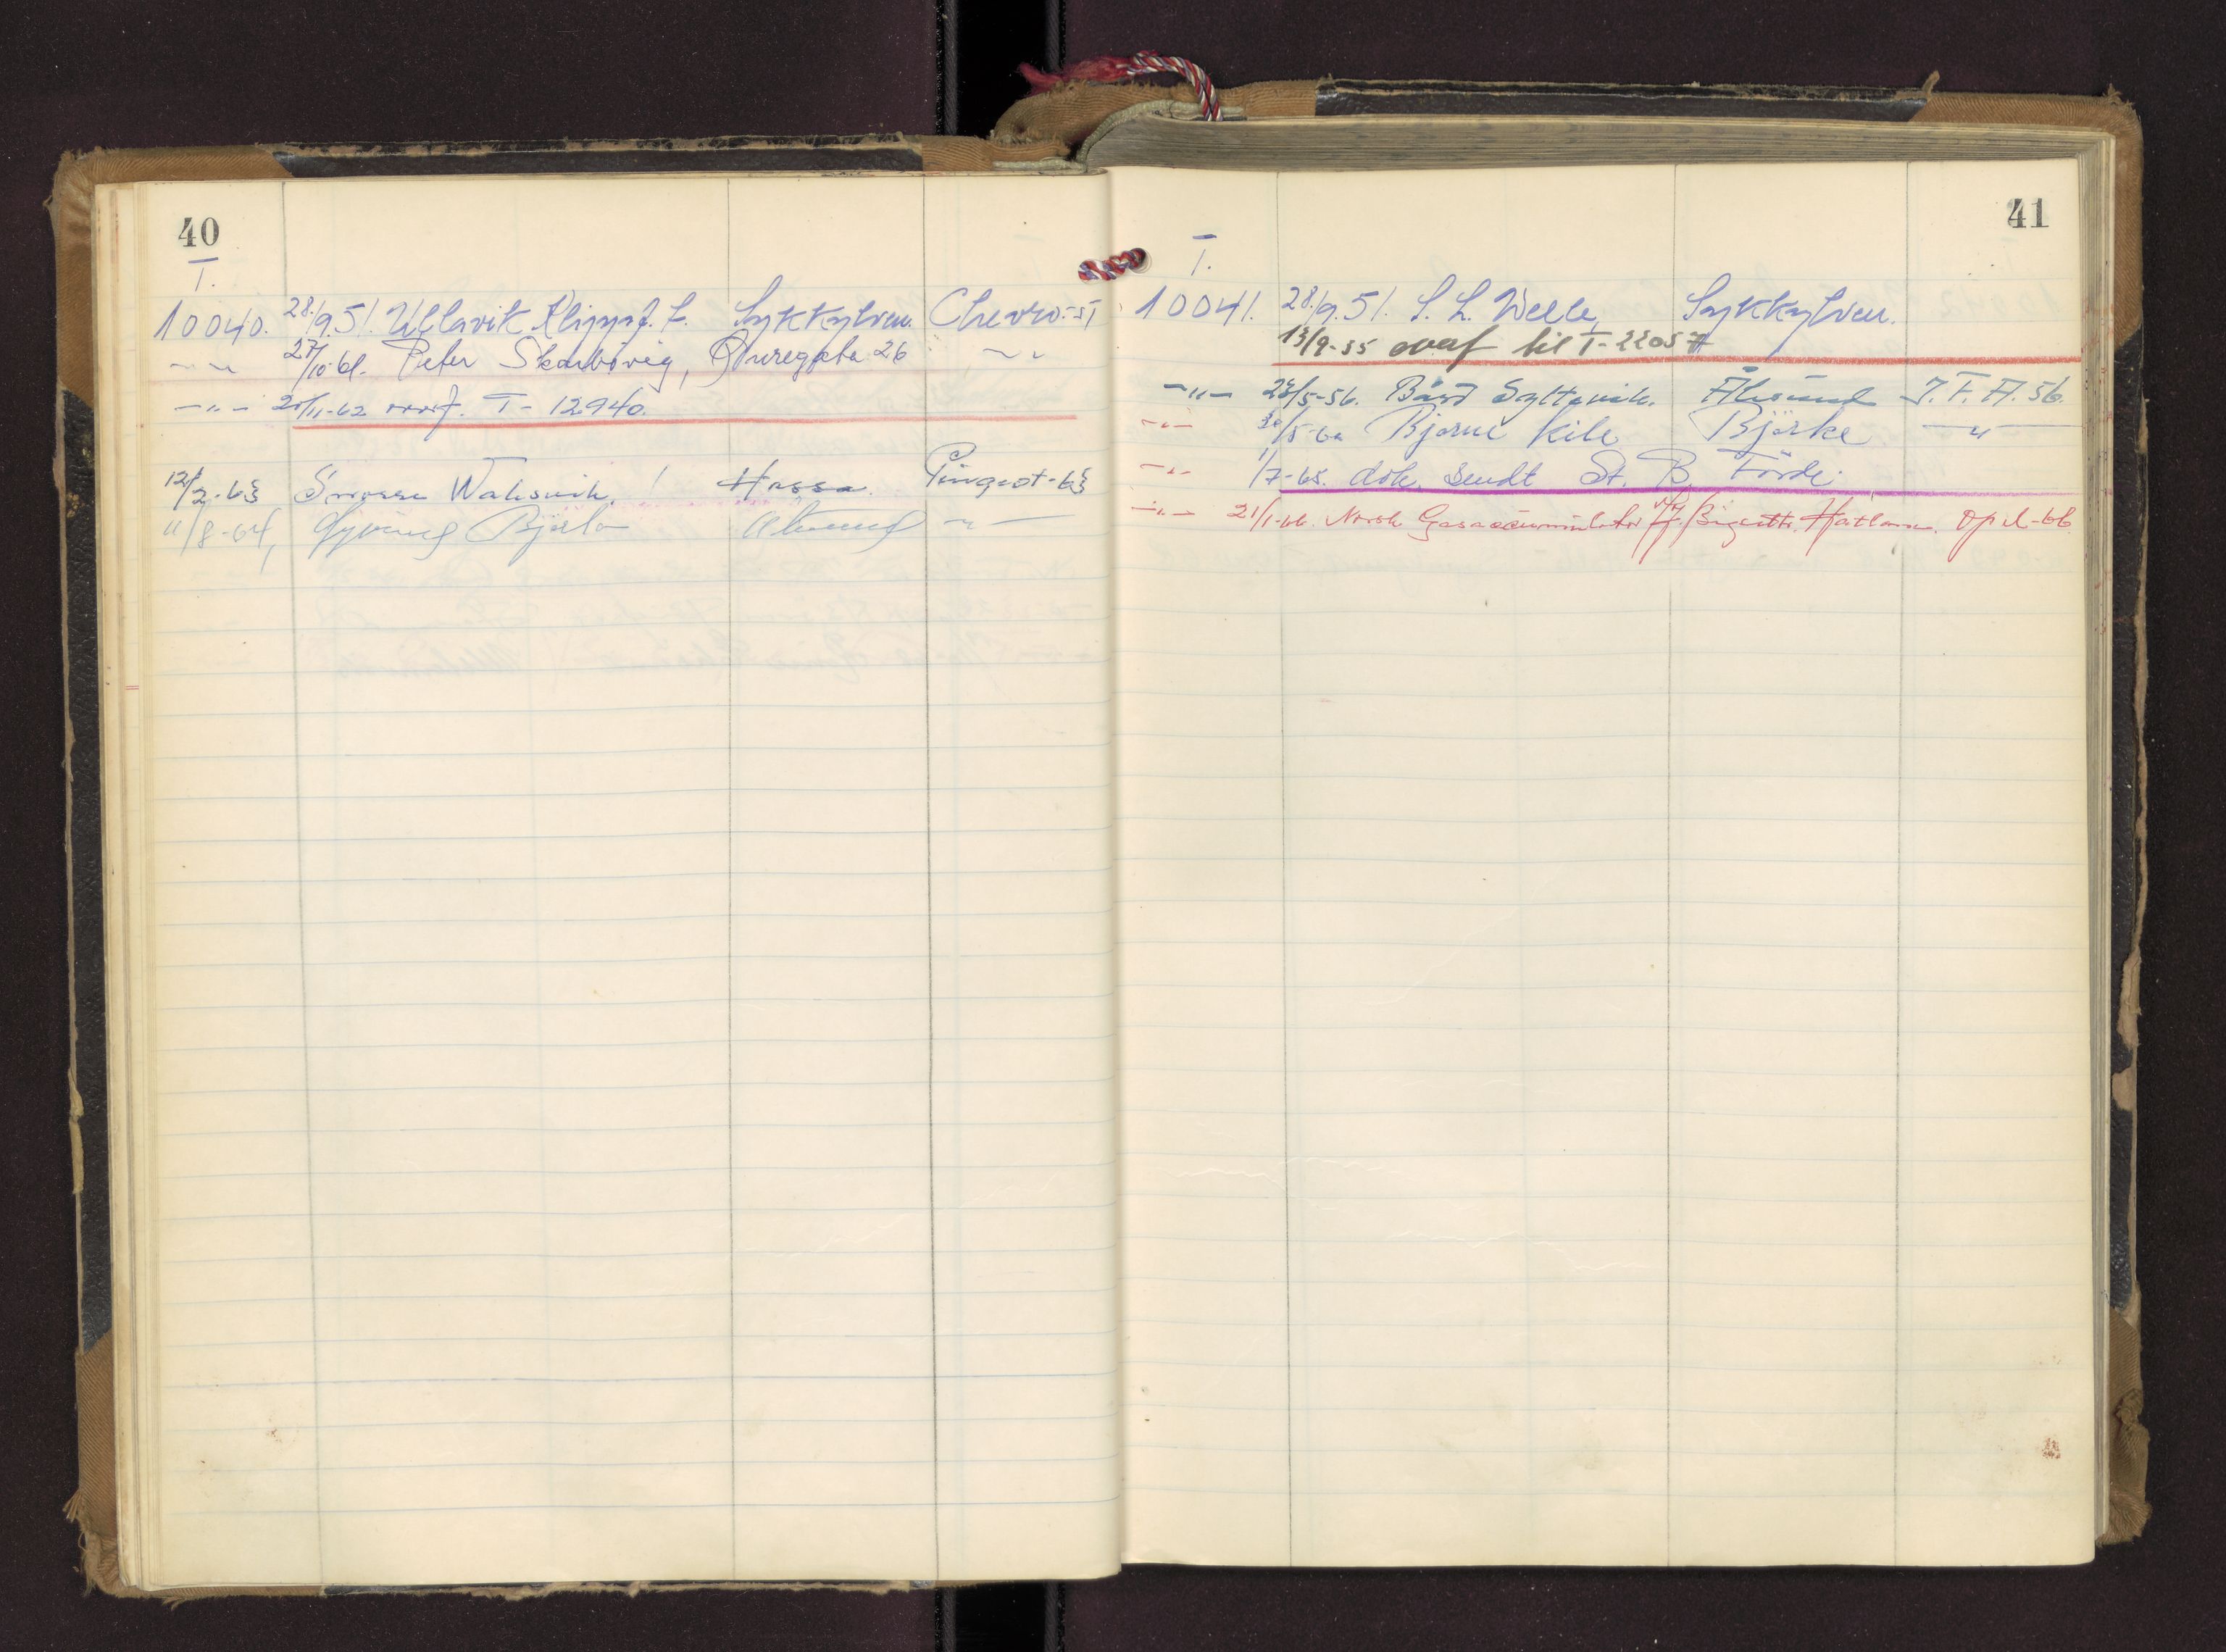 40
T.
10040. 28/9.51. Velavik Klippf. L. Sykkylven. Chevro.-51
-"- 27/10-61. Peter Skarbövig, Buregata 26 -"-
-"- 20/11-62 overf. T-12940.
12/2-63 Snorre Walsvik, Hessa. Peugeot-63
11/8-64, Gyving Björlo Ålesund -"-
41
T.
10041. 28/9.51. S. L. Welle, Sykkylven.
13/9-55 overf til T-22057
-"- 23/5-56. Bård Syltevik. Ålesund I.F.A. 56.
-"- 30/5-60 Bjarne Kile Bjørke -"-
-"- 1/7-65. dok. sendt St. B. Förde.
-"- 21/1-66. Norsk Gasaccumulator Hatlane. Opel-66